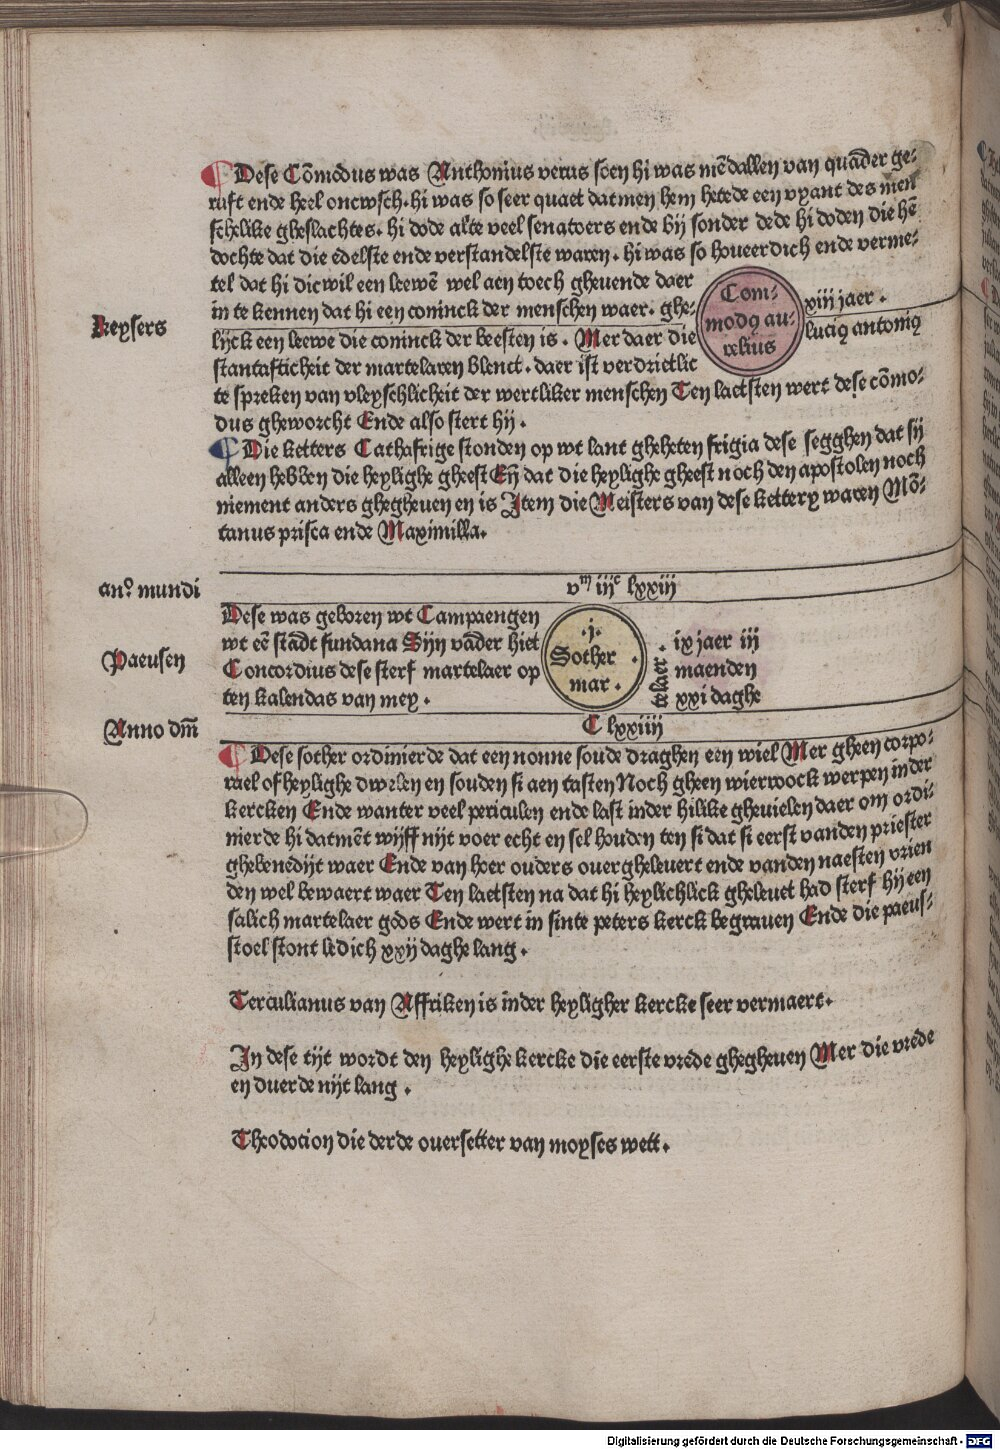 ¶ Dese Cōmodus was Anthonius verus soen hi was mēdallen van quāder ge-
ruft ende heel oncwsch. hi was so seer quaet datmen hem hetede een vyant des men
schelike gheslachtes. hi dode alte veel senatoers ende bij sonder dede hi doden die hē
dochte dat die edelste ende verstandelste waren. hi was so houeerdich ende verme-
tel dat hi dicwil een leewē wel aen toech gheuende daer
in te kennen dat hi een coninck der menschen waer. ghe-
Com-
modꝰ au-
relius
xiij jaer.
luciꝰ antoniꝰ
keysers
lijck een leewe die coninck der beesten is. Mer daer die
stantafticheit der martelaren blenct. daer ist verdrietlic
te spreken van vleyschlicheit der wertliker menschen Ten laetsten wert dese cōmo-
dus gheworcht Ende also stert hij.
¶ Die ketters Cathafrige stonden op wt lant gheheten frigia dese segghen dat sij
alleen hebben die heylighe gheest Eñ dat die heylighe gheest noch den apostolen noch
niement anders ghegheuen en is Item die Meisters van dese kettery waren Mō-
tanus prisca ende Maximilla.
anº mundi
vᵐ iijᶜ lxxiij
Dese was geboren wt Campaengen
wt eē stadt fundana Sijn vāder hiet
Concordius dese sterf martelaer op
ten kalendas van mey.
Paeusen
.j.
Sother.
mar.
telaer.
ix jaer iij
maenden
xxi daghe
Anno dm̄
C lxxiiij
¶ Dese sother ordinierde dat een nonne soude draghen een wiel Mer gheen corpo-
rael of heylighe dwelen en souden si aen tasten Noch gheen wierwoock werpen inder
kercken Ende wanter veel periculen ende last inder hilike gheuielen daer om ordi-
nierde hi datmēt wijff nijt voer echt en sel houden ten si dat si eerst vanden priester
ghebenedijt waer Ende van hoer ouders ouergheleuert ende vanden naesten vrien
den wel bewaert waer Ten laetsten na dat hi heylichlick gheleuet had sterf hij een
salich martelaer gods Ende wert in sinte peters kerck begrauen Ende die paeus-
stoel stont ledich xxij daghe lang.
Terculianus van Affriken is inder heyligher kercke seer vermaert.
In dese tijt wordt den heylighe kercke die eerste vrede ghegheuen Mer die vrede
en duerde nijt lang.
Theodocion die derde ouersetter van moyses wett.
Digitalisierung gefördert durch die Deutsche Forschungsgemeinschaft - DFG